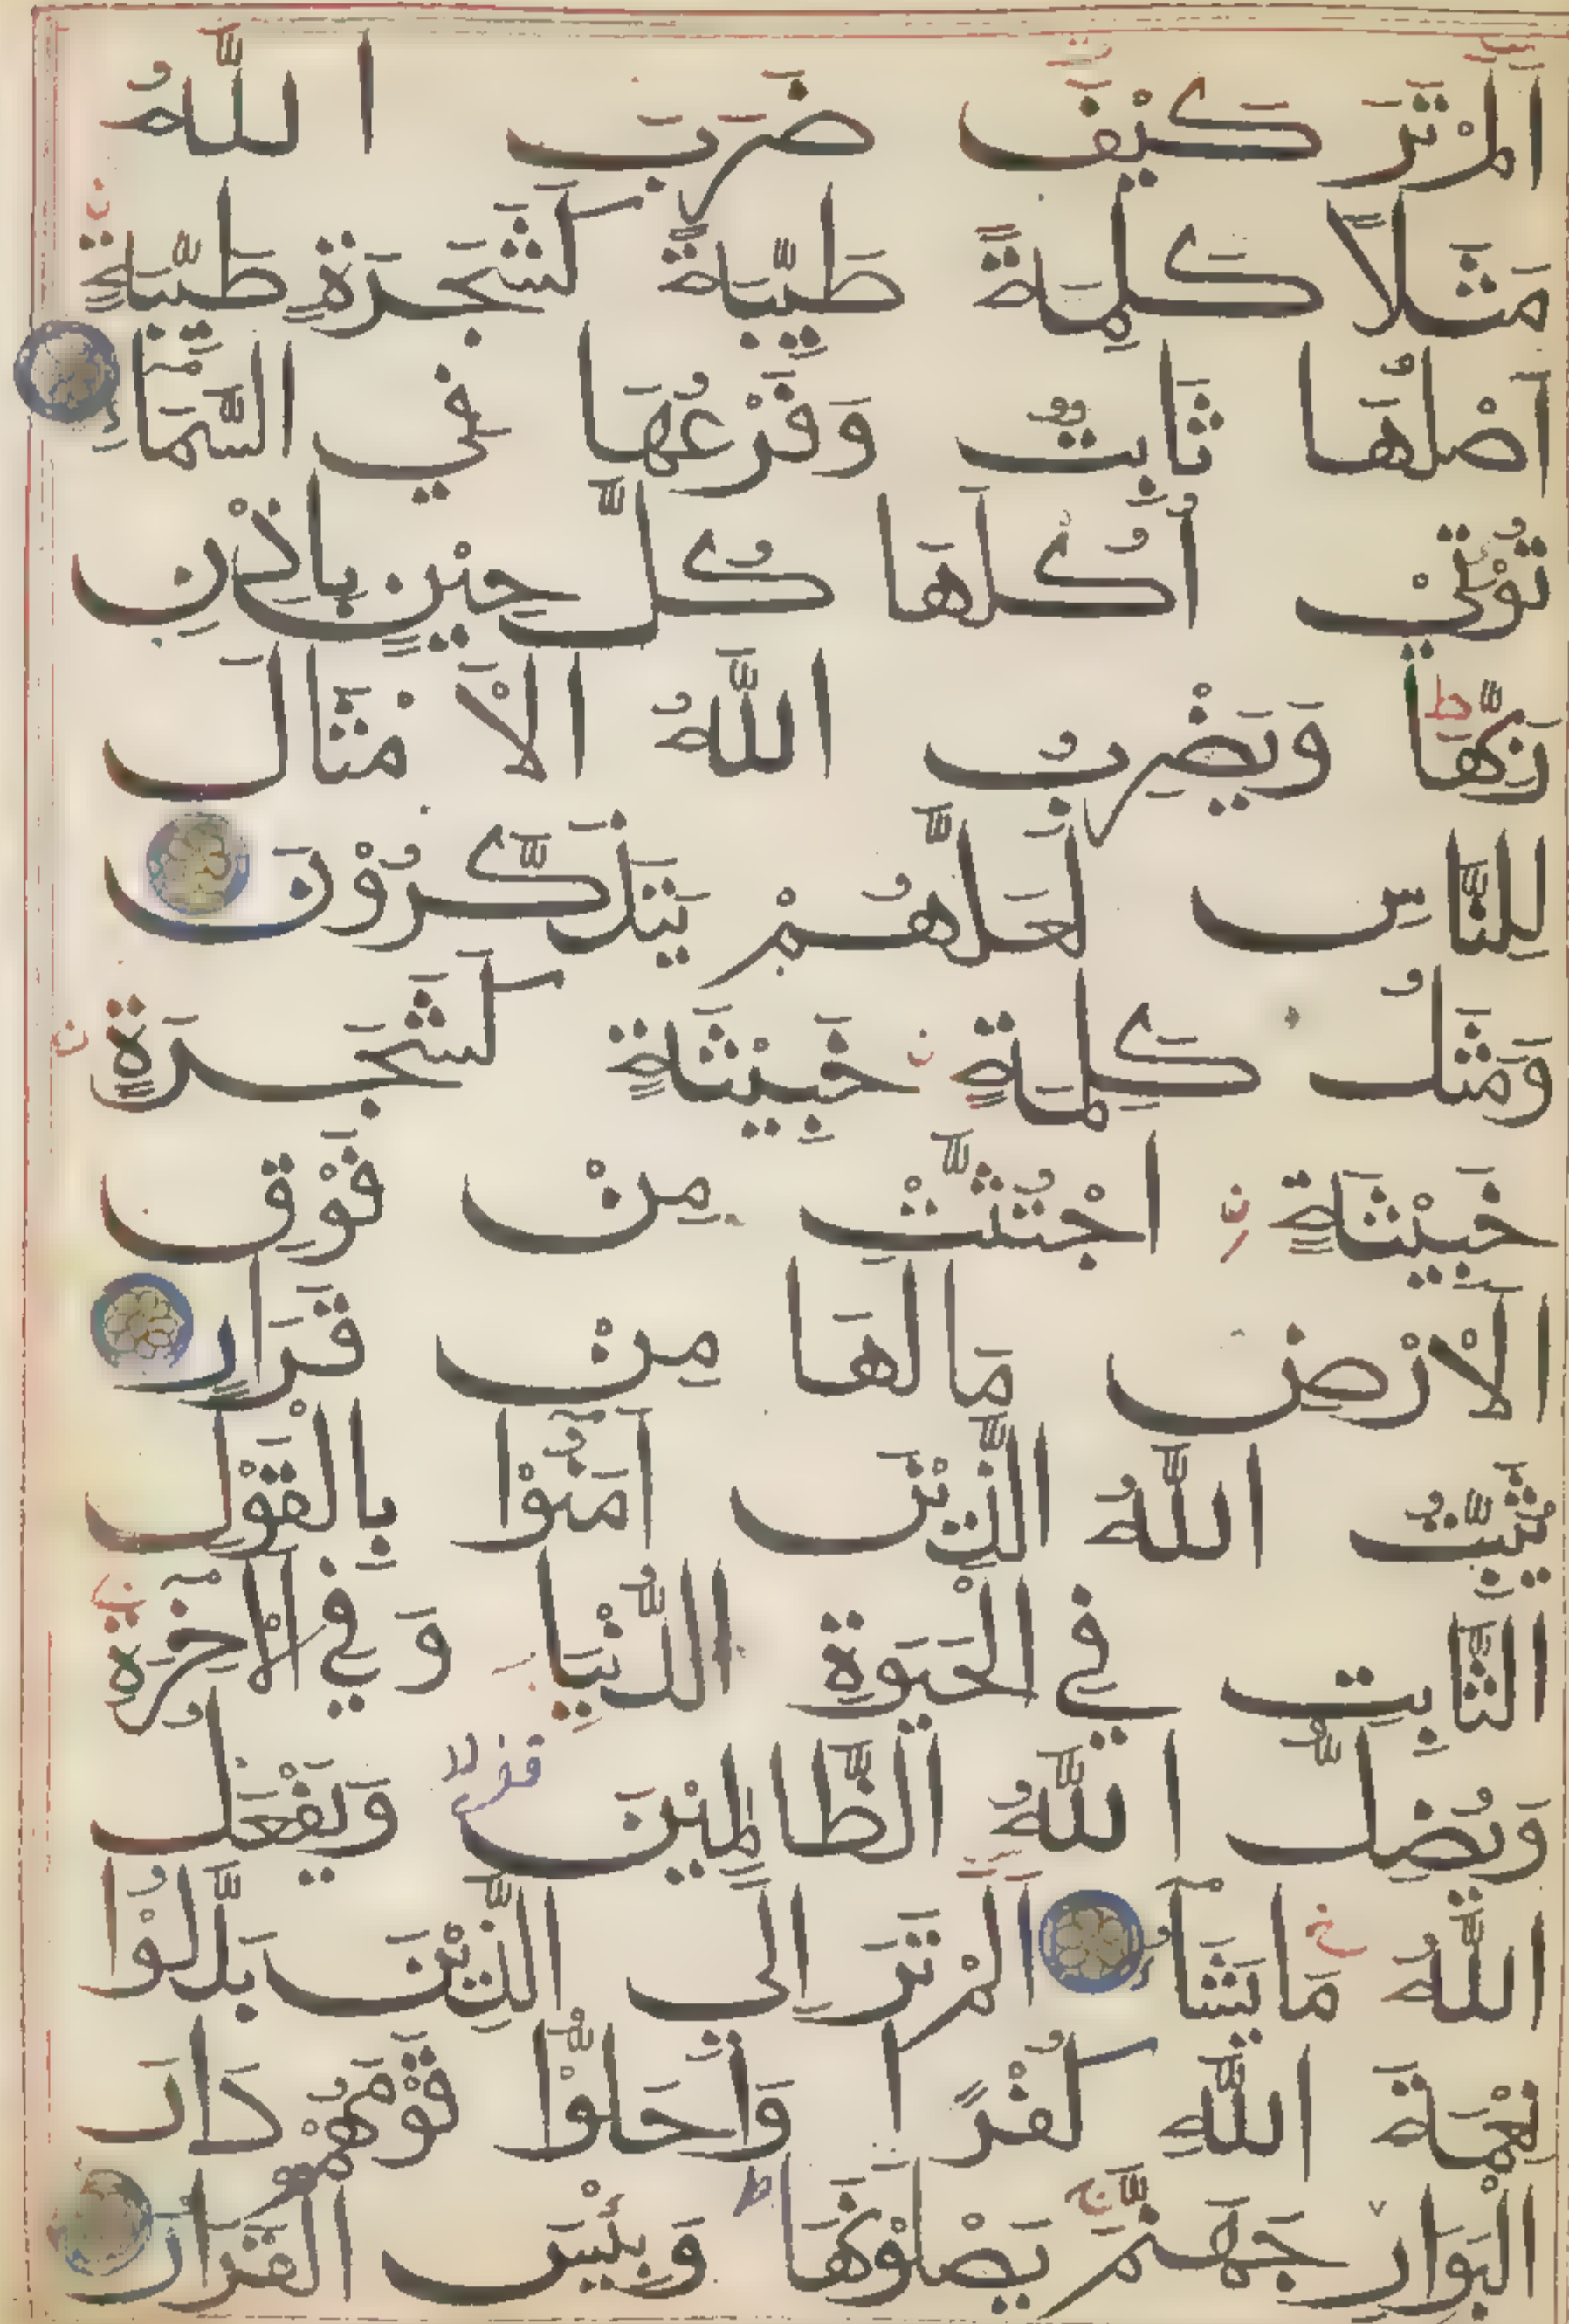 اَلَمْ تَرَ كَيْفَ ضَرَبَ اللّٰهُ
مَثَلًا كَلِمَةً طَيِّبَةً كَشَجَرَةٍ طَيِّبَةٍ
اَصْلُهَا ثَابِتٌ وَفَرْعُهَا فِي السَّمَآءِ
تُؤْتِيْ اُكُلَهَا كُلَّ حِيْنٍ بِاِذْنِ
رَبِّهَا وَيَضْرِبُ اللّٰهُ الْاَمْثَالَ
لِلنَّاسِ لَعَلَّهُمْ يَتَذَكَّرُوْنَ
وَمَثَلُ كَلِمَةٍ خَبِيْثَةٍ كَشَجَرَةٍ
خَبِيْثَةٍ اجْتُثَّتْ مِنْ فَوْقِ
الْاَرْضِ مَا لَهَا مِنْ قَرَارٍ
يُثَبِّتُ اللّٰهُ الَّذِيْنَ آمَنُوْا بِالْقَوْلِ
الثَّابِتِ فِي الْحَيٰوةِ الدُّنْيَا وَفِي الْآخِرَةِ
وَيُضِلُّ اللّٰهُ الظَّالِمِيْنَ وَيَفْعَلُ
اللّٰهُ مَا يَشَآءُ اَلَمْ تَرَ اِلَى الَّذِيْنَ بَدَّلُوْا
نِعْمَةَ اللّٰهِ كُفْرًا وَاَحَلُّوْا قَوْمَهُمْ دَارَ
الْبَوَارِ جَهَنَّمَ يَصْلَوْنَهَا وَبِئْسَ الْقَرَارُ